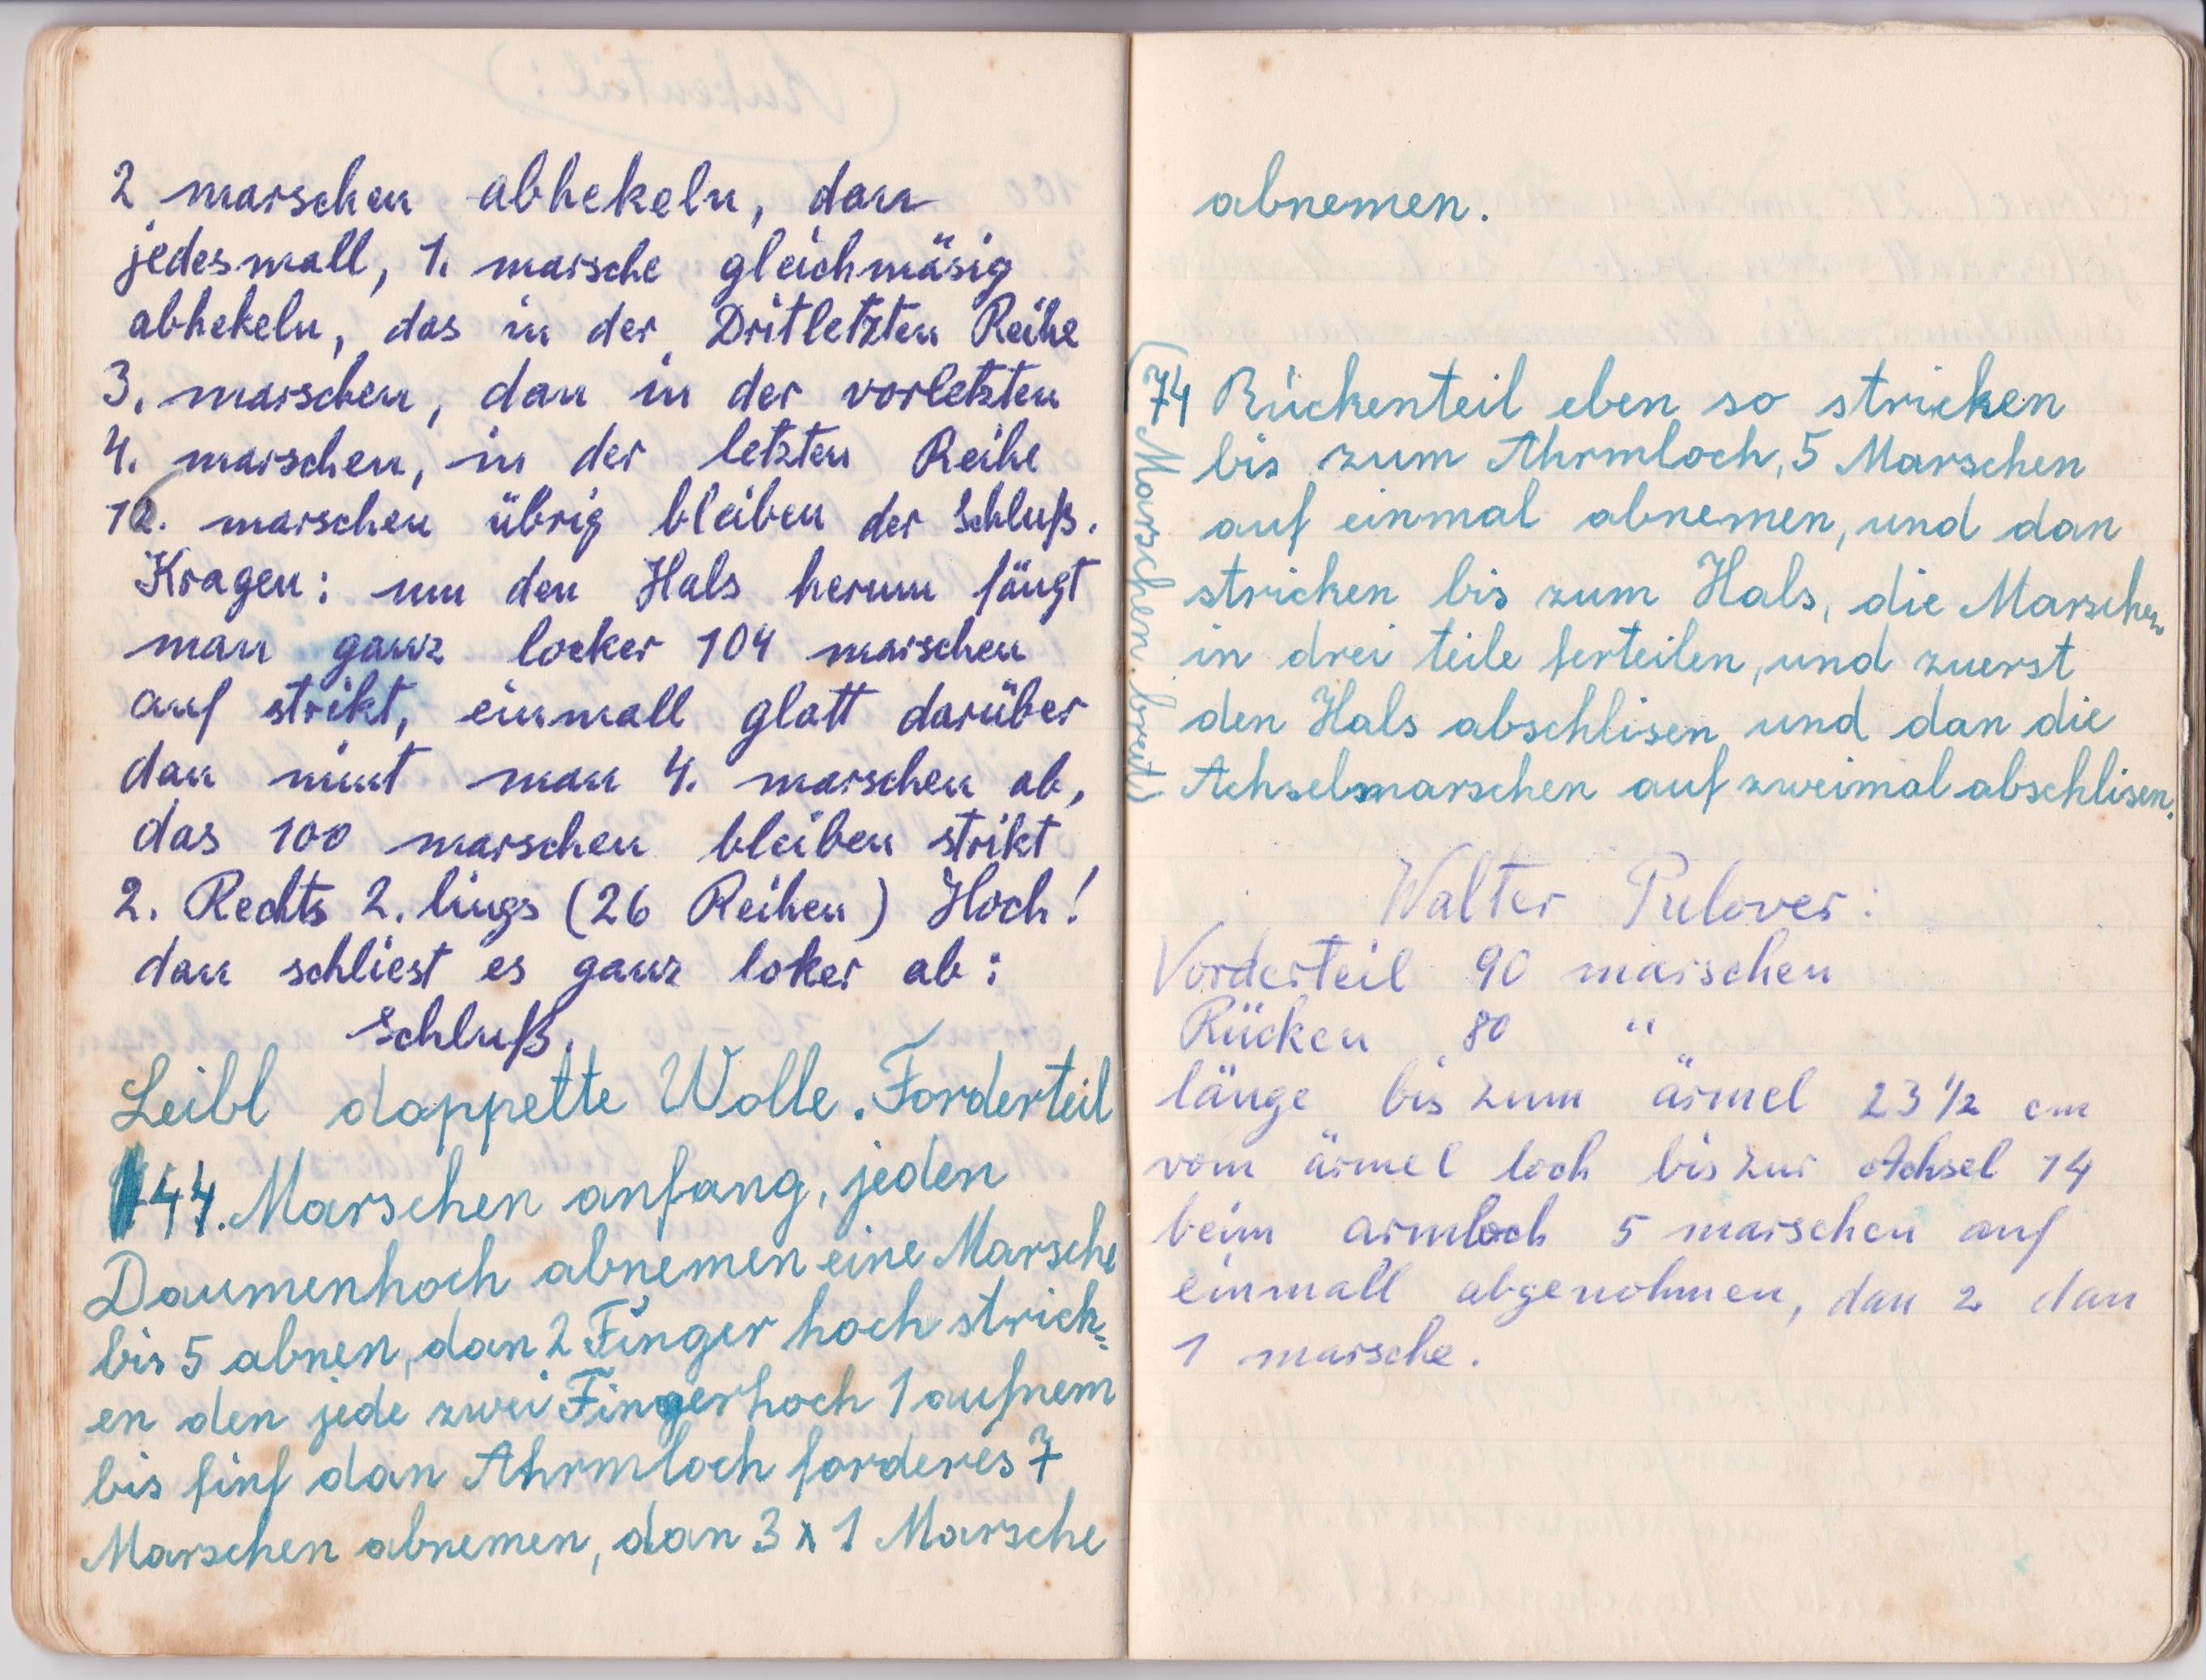 2 marschen abhekeln, dan
jedesmall, 1. marsche gleichmäsig
abhekeln, das in der Dritletzten Reihe
3. marschen, dan in der vorletzten
4. marschen, in der letzten Reihe
12. marschen übrig bleiben der Schluß.
Kragen: um den Hals herum fängt
man ganz locker 104 marschen
auf strikt, einmall glatt darüber
dan nimt man 4. marschen ab,
das 100 marschen bleiben strikt
2. Rechts 2. lings (26 Reihen) Hoch!
dan schliest es ganz loker ab:
Schluß.
Leibl doppelte Wolle. Forderteil
44. Marschen anfang, jeden
Daumenhoch abnemen eine Marsche
bis 5 abnen, dan 2 Finger hoch strick=
en den jede zwei Fingerhoch 1 aufnem
bis finf dan Ahrmloch forderes 7
Marschen abnemen, dan 3 x 1 Marsche
abnemen.
(74 Marschen breit)
Rückenteil eben so stricken
bis zum Ahrmloch, 5 Marschen
auf einmal abnemen, und dan
stricken bis zum Hals, die Marschen
in drei teile ferteilen, und zuerst
den Hals abschlisen und dan die
Achselmarschen auf zweimal abschlisen.
Walter Pulover:
Vorderteil 90 marschen
Rücken 80 "
länge bis zum ärmel 23 1/2 cm
vom ärmel loch bis zur Achsel 14
beim armloch 5 marschen auf
einmall abgenohmen, dan 2 dan
1 marsche.